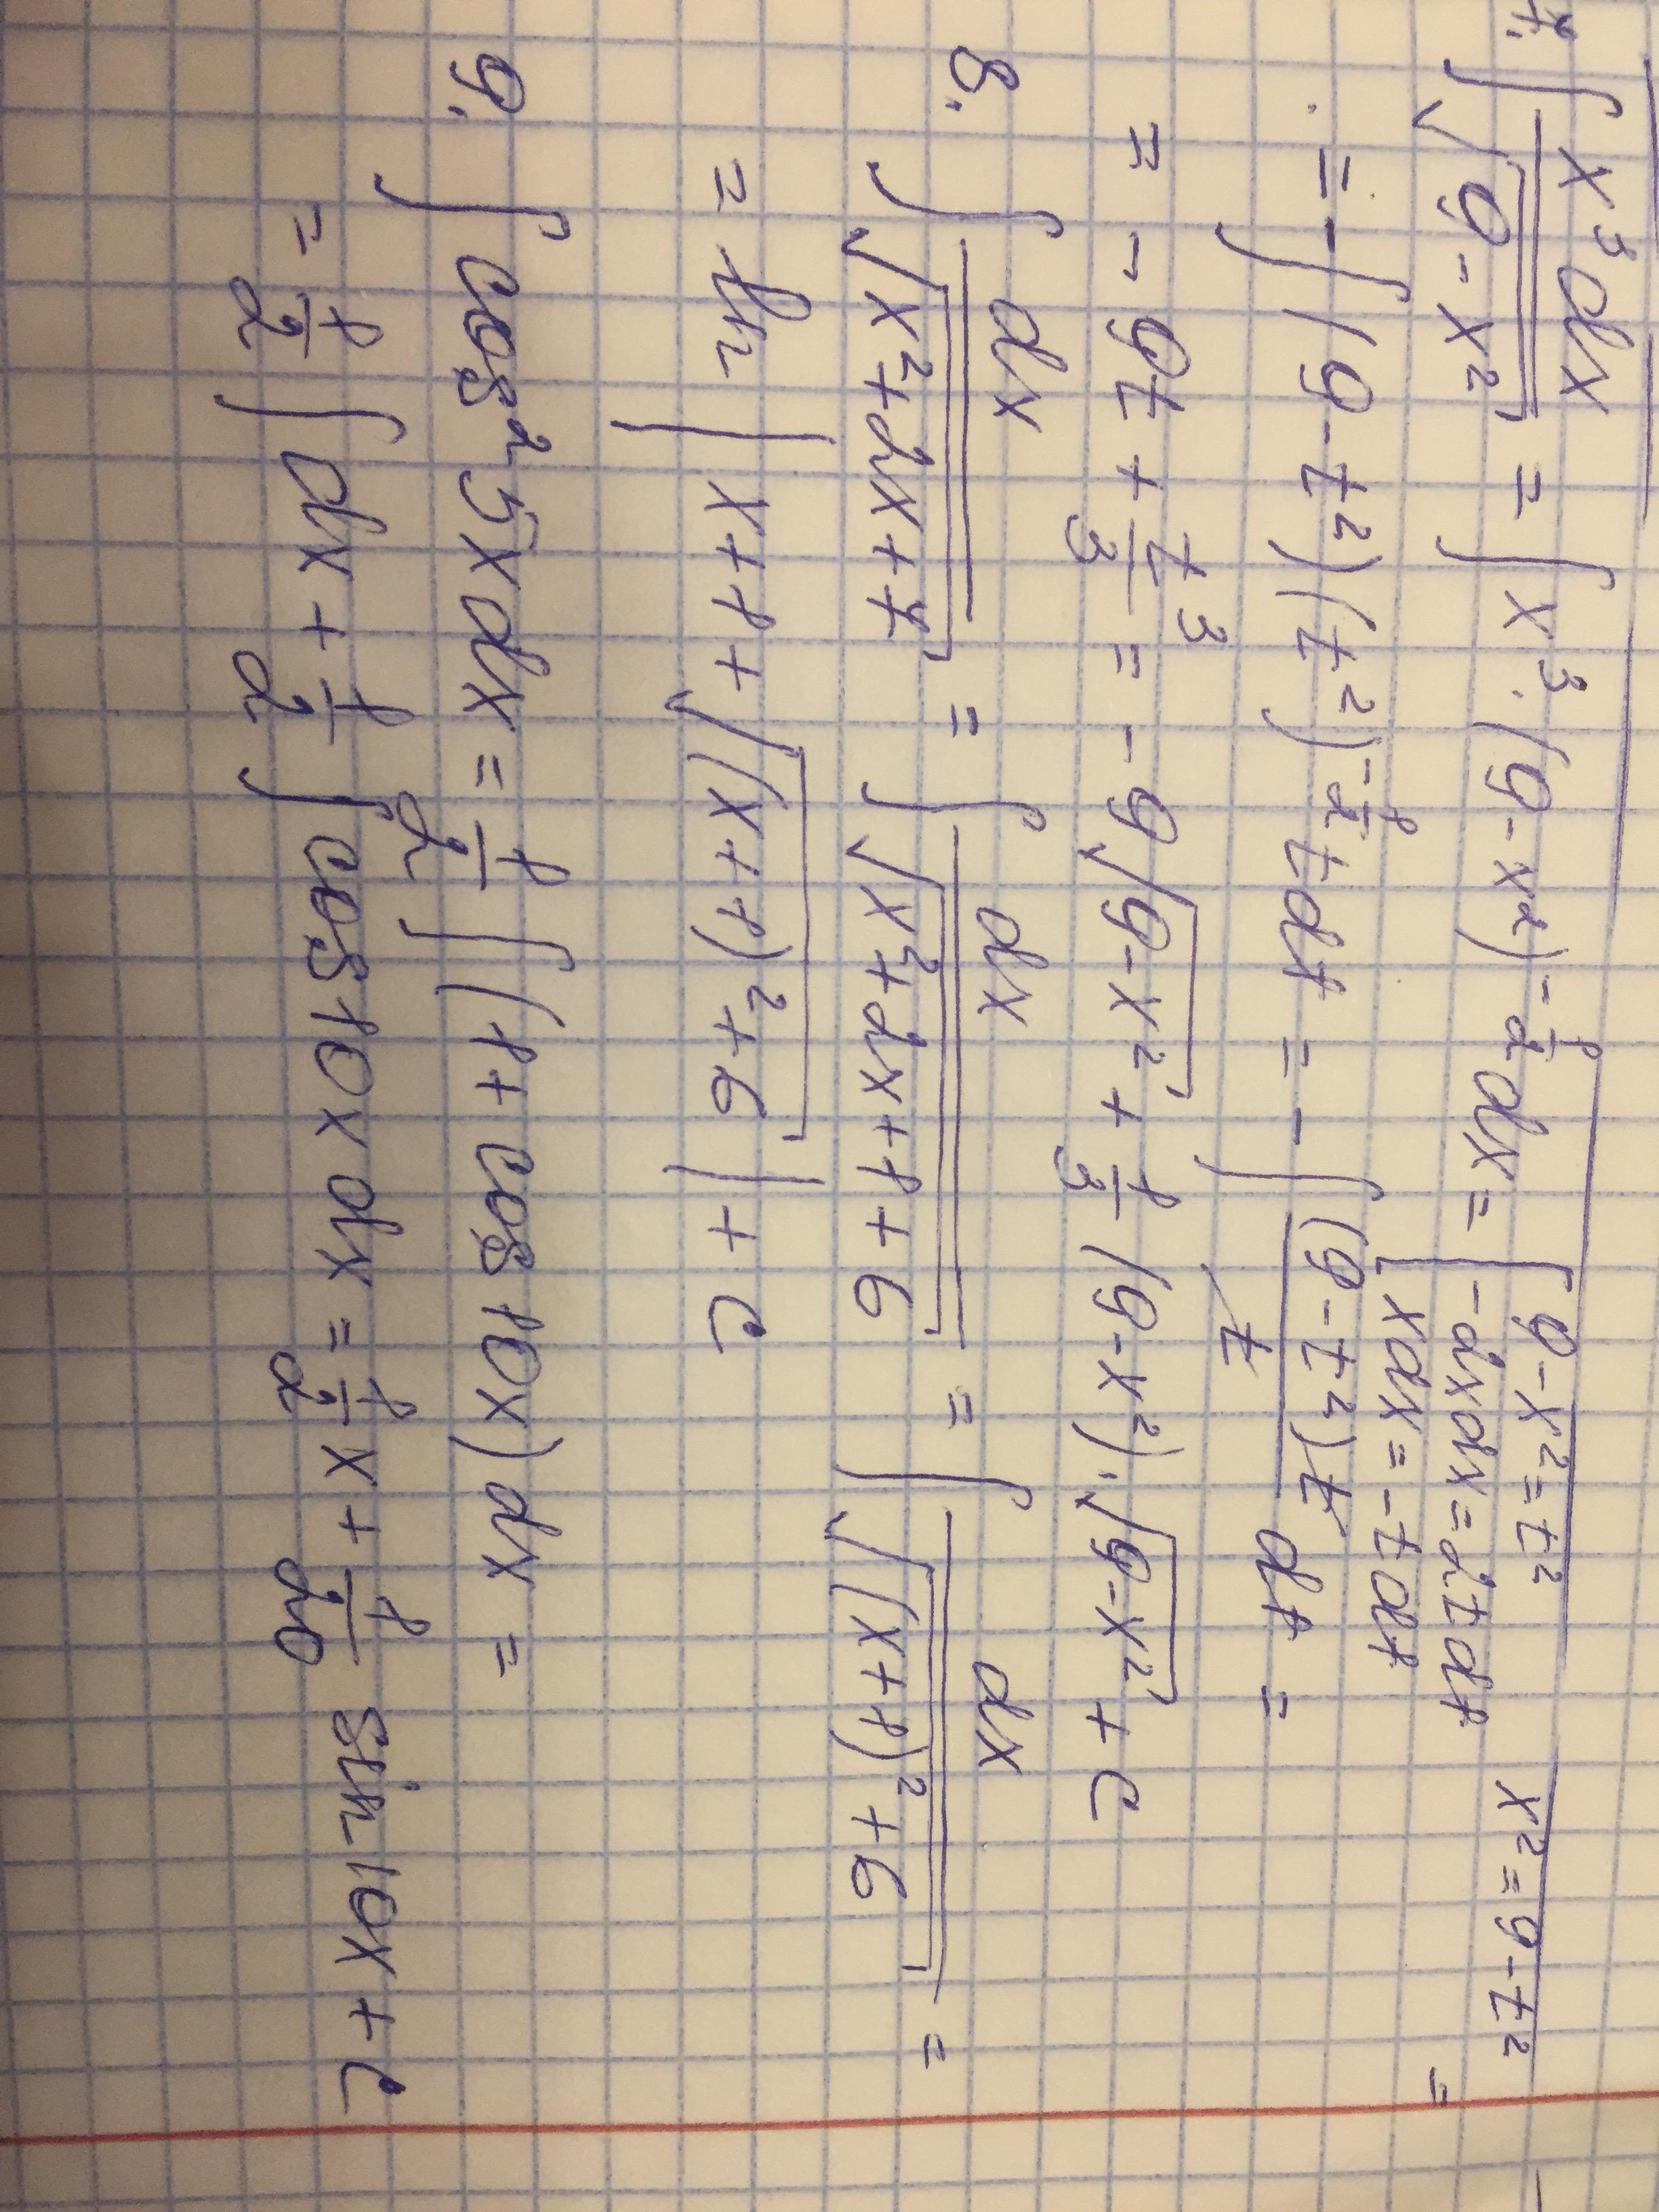 7. ∫ x³dx / √(9-x²) = ∫ x³·(9-x²)^(-1/2) dx = [ 9-x²=t²   x²=9-t²
-2xdx=2tdt
xdx=-tdt =
= -∫(9-t²)(t²)^(-1/2) tdt = -∫ (9-t²)t / t dt =
= -9t + t³/3 = -9√(9-x²) + 1/3 (9-x²)·√(9-x²) + C
8. ∫ dx / √(x²+2x+7) = ∫ dx / √(x²+2x+1+6) = ∫ dx / √((x+1)²+6) =
= ln | x+1+√((x+1)²+6) | + C
9. ∫ cos²5xdx = 1/2 ∫(1+cos10x)dx =
= 1/2 ∫dx + 1/2 ∫cos10xdx = 1/2 x + 1/20 sin10x + C